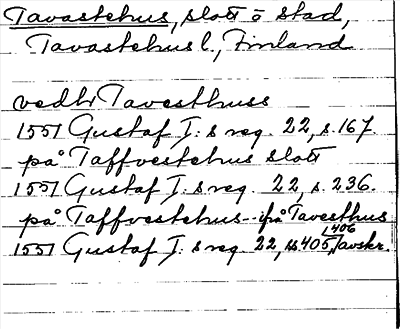 Tavastehus, slott o stad,
Tavastehus l., Finland
vedh Tavesthuss
1551 Gustaf I:s reg. 22, s. 167.
på Taffvestehus slott
1551 Gustaf I:s reg. 22, s. 236.
på Taffvestehus - - frå Tavesthus
1551 Gustaf I:s reg. 22, ss 405, 406, avskr.